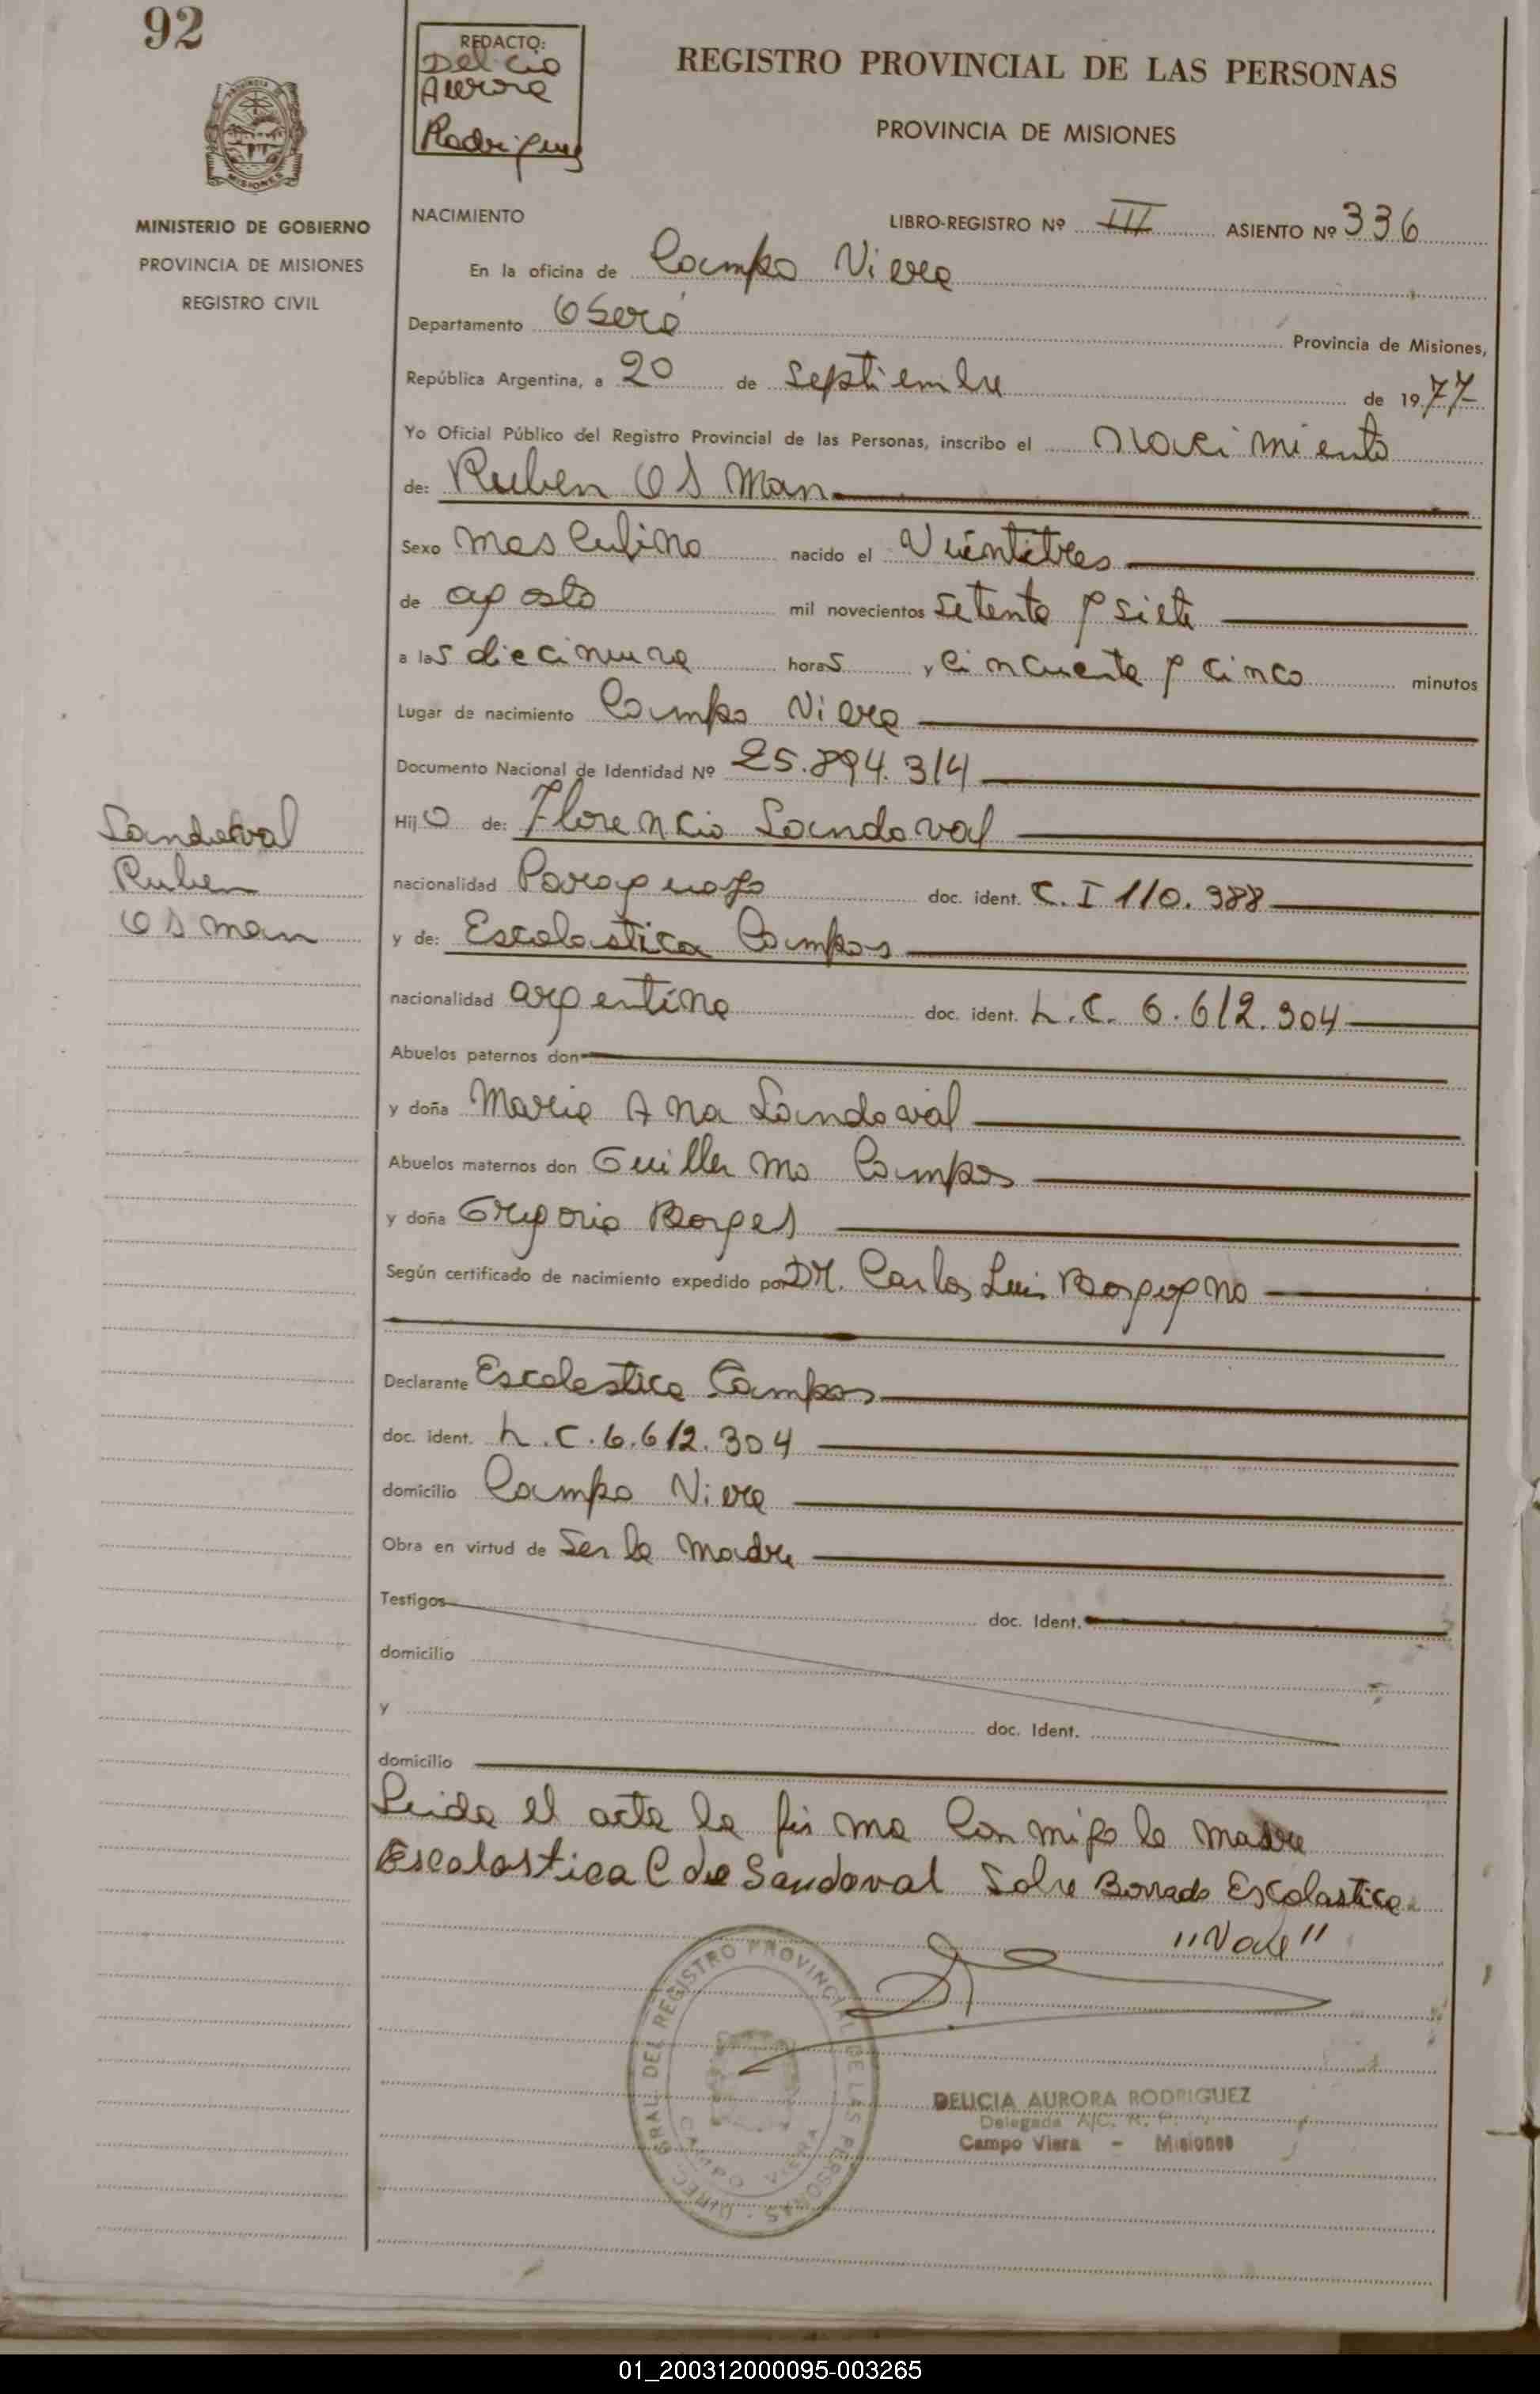 92
REDACTO:
Delicia
Aurora
Rodriguez
REGISTRO PROVINCIAL DE LAS PERSONAS
PROVINCIA DE MISIONES
MISIONES
MINISTERIO DE GOBIERNO
PROVINCIA DE MISIONES
REGISTRO CIVIL
NACIMIENTO LIBRO-REGISTRO Nº III ASIENTO Nº 336
En la oficina de Campo Viera
Departamento Oberá Provincia de Misiones,
República Argentina, a 20 de Septiembre de 1977
Yo Oficial Público del Registro Provincial de las Personas, inscribo el nacimiento
de: Ruben Osman
Sexo masculino nacido el Veintitres
de agosto mil novecientos setenta y siete
a las diecinueve horas y cincuenta y cinco minutos
Lugar de nacimiento Campo Viera
Documento Nacional de Identidad Nº 25.894.314
Hijo de: Florencio Sandoval
nacionalidad Paraguayo doc. ident. C. I 110.388
y de: Escolastica Campos
nacionalidad argentina doc. ident. L.C. 6.612.304
Abuelos paternos don
y doña Maria Ana Sandoval
Abuelos maternos don Guillermo Campos
y doña Gregoria Borges
Según certificado de nacimiento expedido por DR. Carlos Luis Borgogno
Declarante Escolastica Campos
doc. ident. L.C. 6.612.304
domicilio Campo Viera
Obra en virtud de Ser la madre
Testigos doc. Ident.
domicilio
y doc. Ident.
domicilio
Leida el acta la firma conmigo la madre
Escolastica C de Sandoval Sobre Borrado Escolastica
"Vale"
Sandoval
Ruben
Osman
DIREC. GRAL. DEL REGISTRO PROVINCIAL DE LAS PERSONAS
CAMPO VIERA
DELICIA AURORA RODRIGUEZ
Delegada A/C. R. P.
Campo Viera - Misiones
01_200312000095-003265